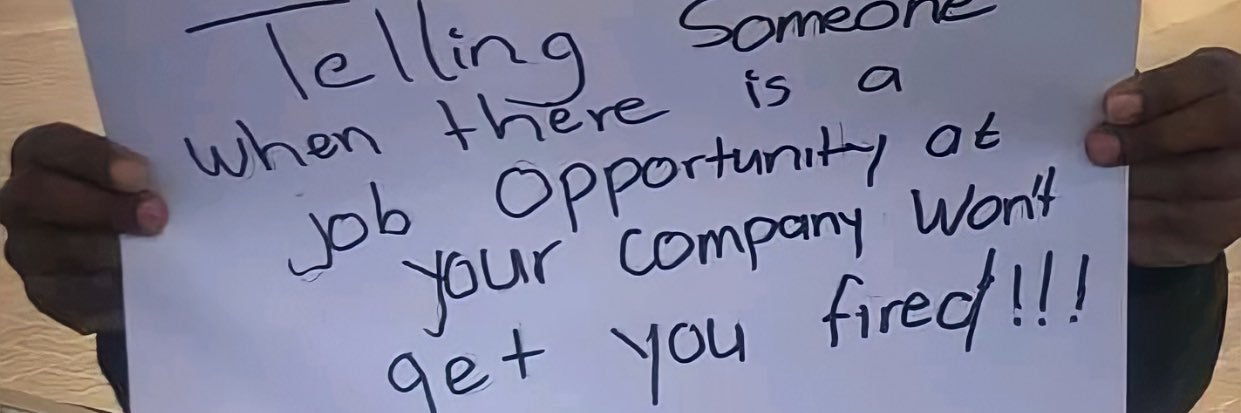 Telling Someone
when there is a
job Opportunity at
your company Won't
get you fired!!!